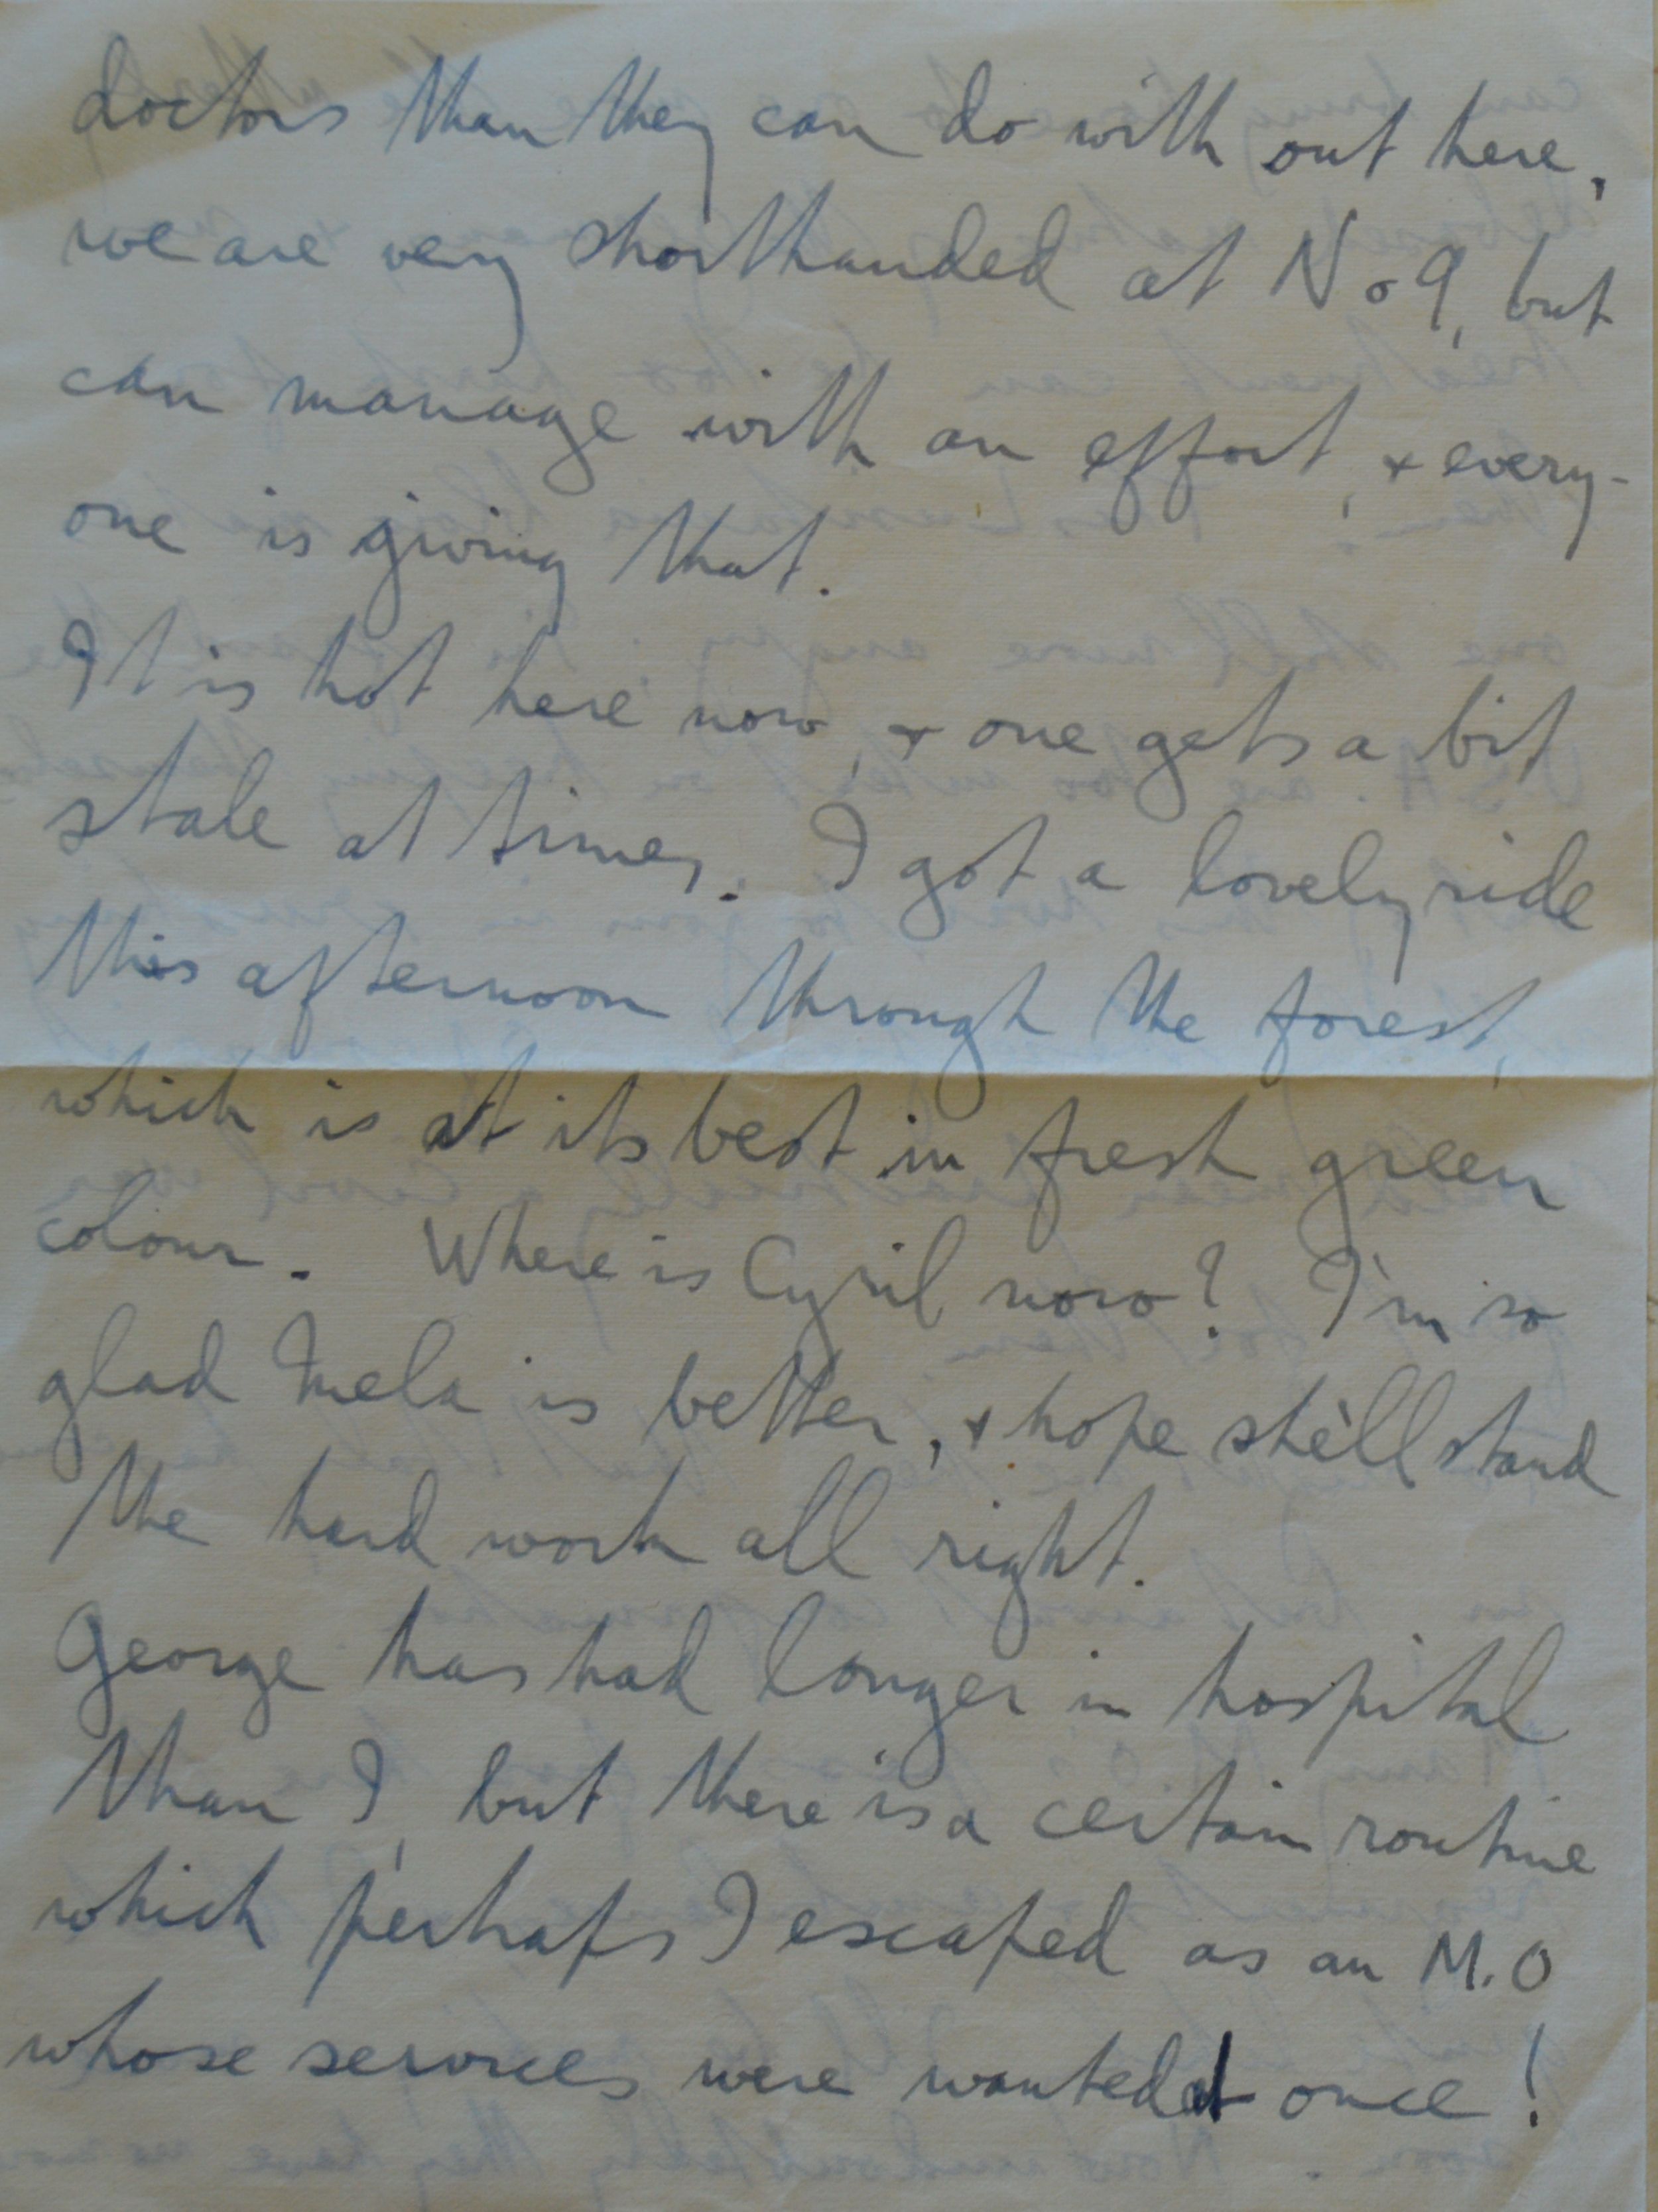 doctors than they can do with out here,
we are very shorthanded at No 9, but
can manage with an effort, + every-
one is giving that.
It is hot here now, + one gets a bit
stale at times. I got a lovely ride
this afternoon through the forest,
which is at its best in fresh green
colour. Where is Cyril now? I'm so
glad Imela is better, + hope she'll stand
the hard work all right.
George has had longer in hospital
than I, but there is a certain routine
which perhaps I escaped as an M.O
whose services were wanted at once!